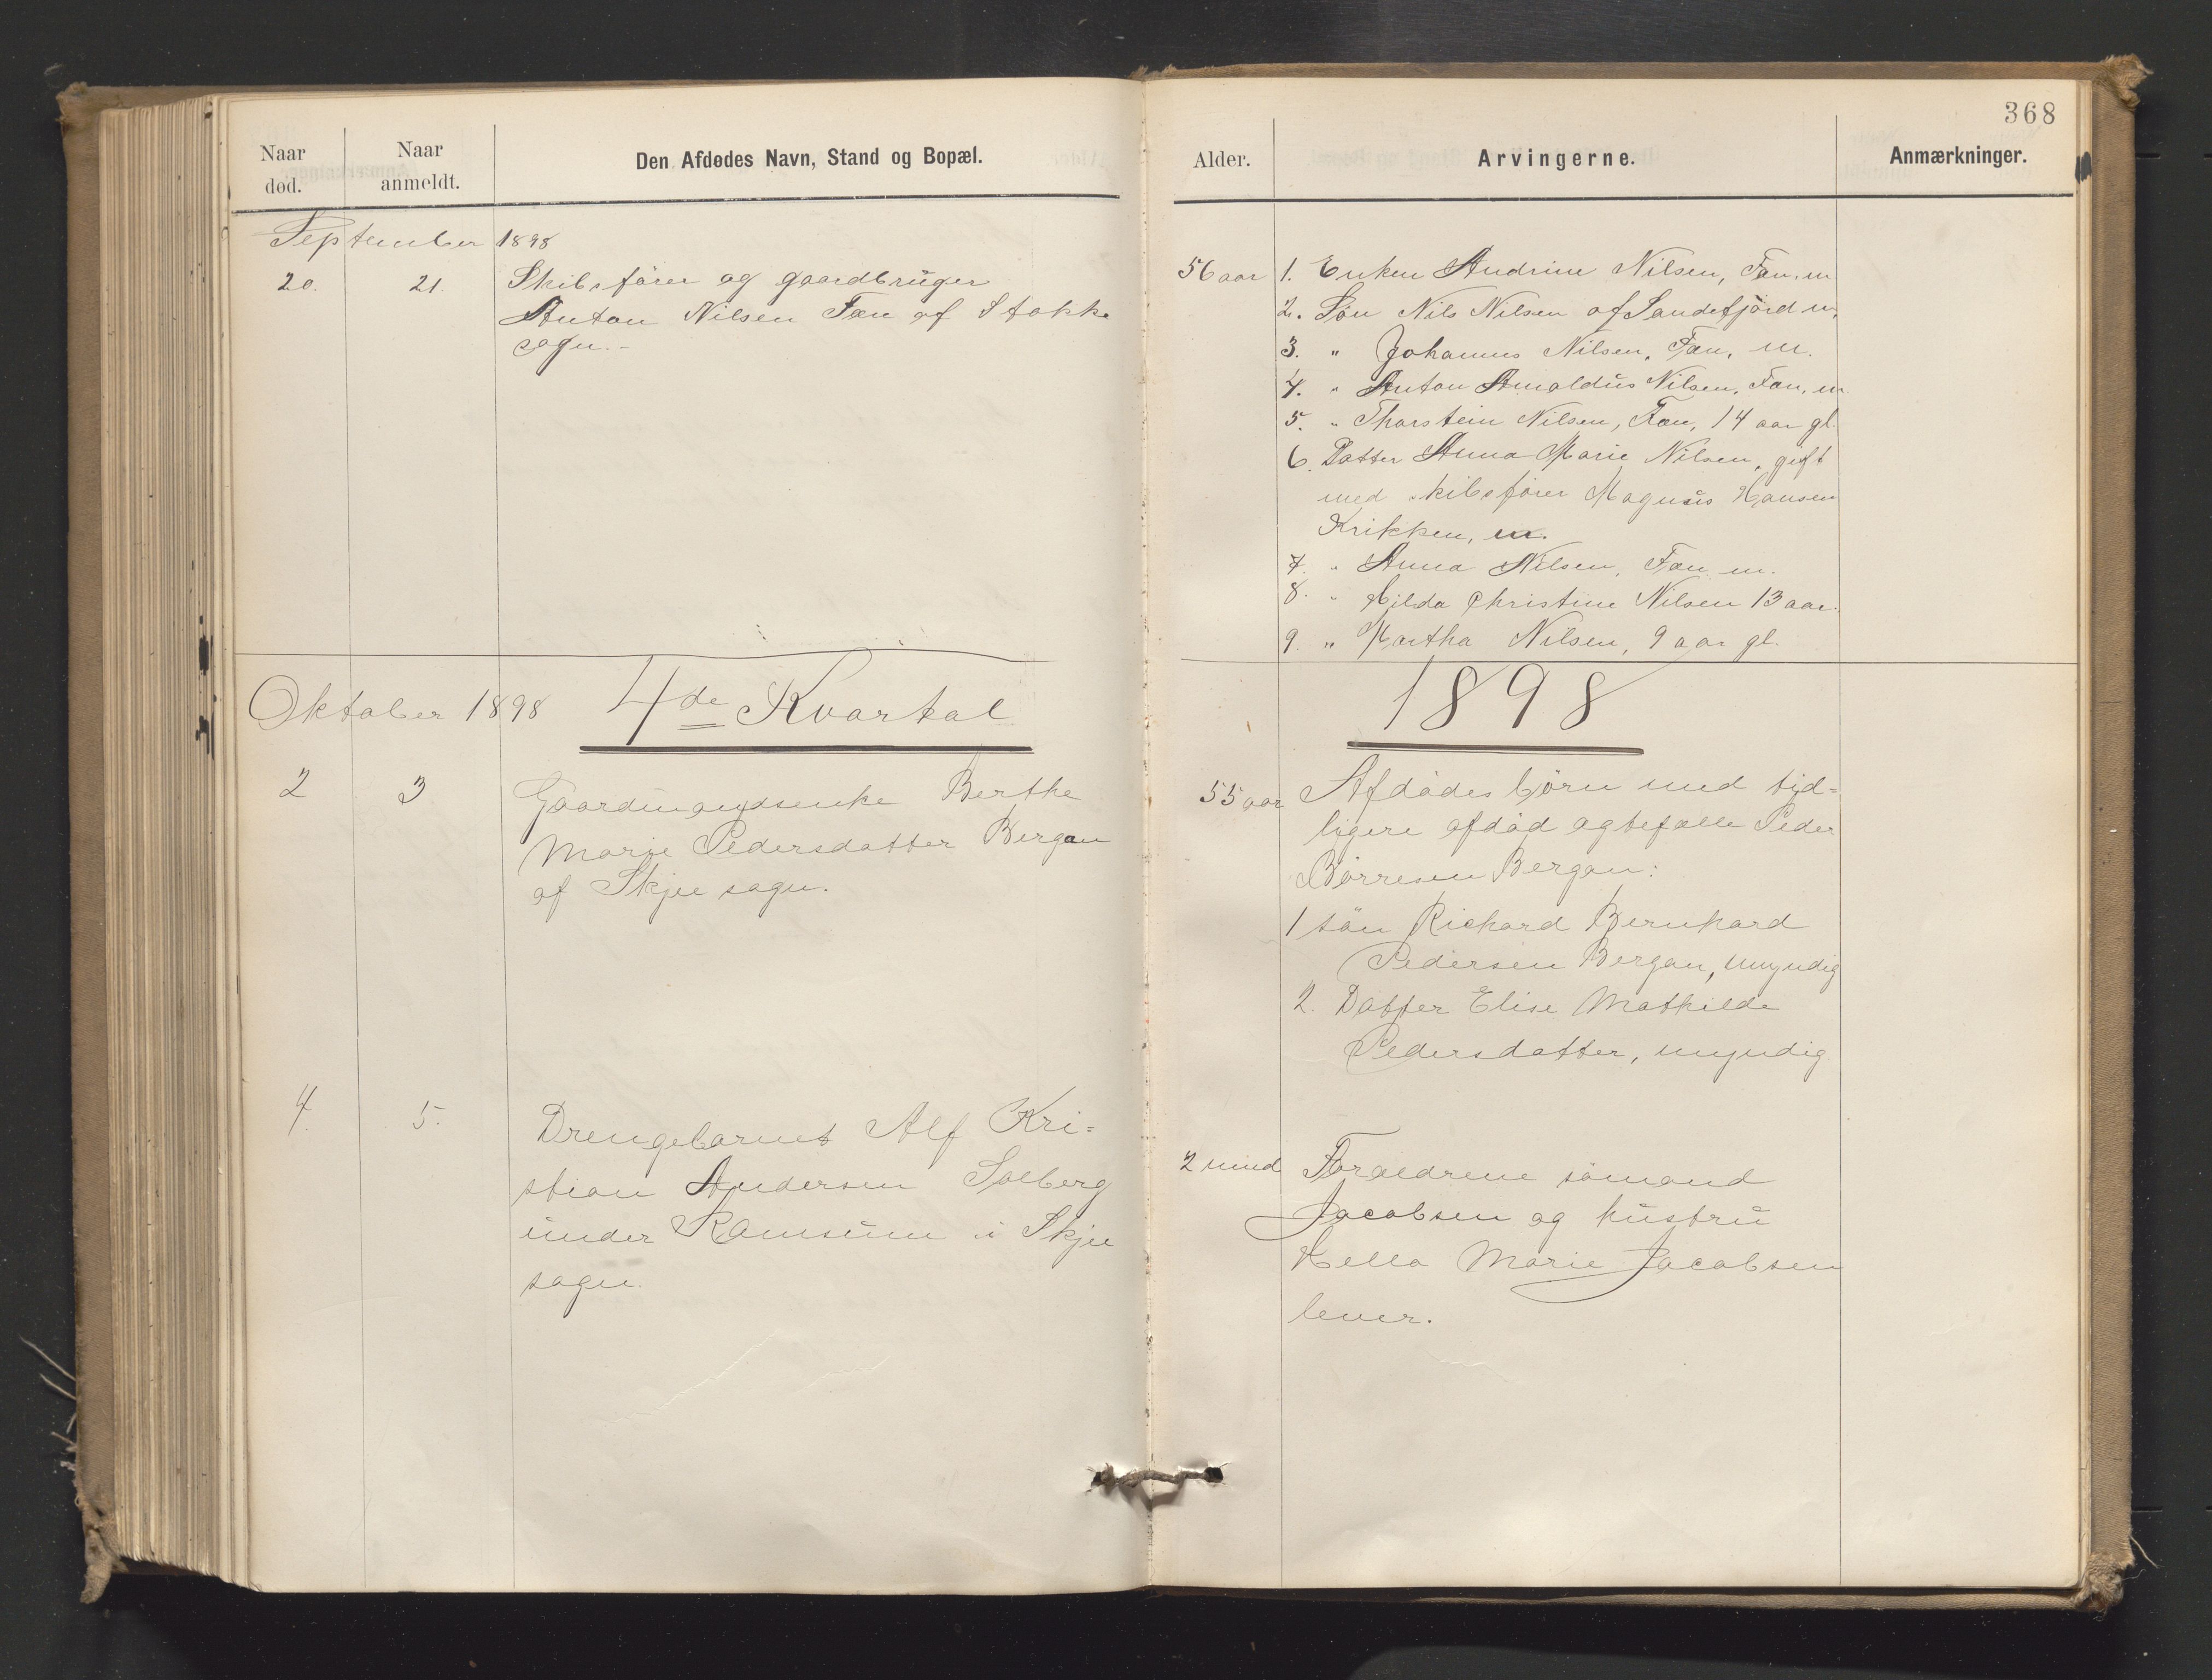 368
Naar død.
Naar anmeldt.
Den Afdødes Navn, Stand og Bopæl.
Alder.
Arvingerne.
Anmærkninger.
September 1898
20. 21. Skibsfører og gaardbruger
Anton Nilsen Fæn af Stokke
sogn.-
56 aar 1. Enken Andrine Nilsen, Fæn, m
2. Søn Nils Nilsen af Sandefjord m.
3. " Johannes Nilsen, Fæn, m.
4. " Anton Arnoldus Nilsen, Fæn, m
5. " Thorstein Nilsen, Fæn, 14 aar gl.
6. Datter Anna Marie Nilsen, gift
med skibsfører Magnus Hansen
Krikken, m.
7. " Anna Nilsen, Fæn m.
8. " Hilda Christine Nilsen 13 aar.
9. " Martha Nilsen, 9 aar gl.
Oktober 1898 4de Kvartal
1898
2 3 Gaardmandsenke Berthe
Marie Pedersdatter Bergan
af Skjee sogn.
55 aar Afdødes børn med tid=
ligere afdød ægtefælle Peder
Børresen Bergan:
1 søn Richard Bernhard
Pedersen Bergan, umyndig
2. Datter Elise Mathilde
Pedersdatter, umyndig
4. 5. Drengebarnet Alf Kri=
stian Andersen Solberg
under Ramsum i Skjee
sogn.
2 mnd Forældrene sømand
Jacobsen og hustru
Hella Marie Jacobsen
lever.